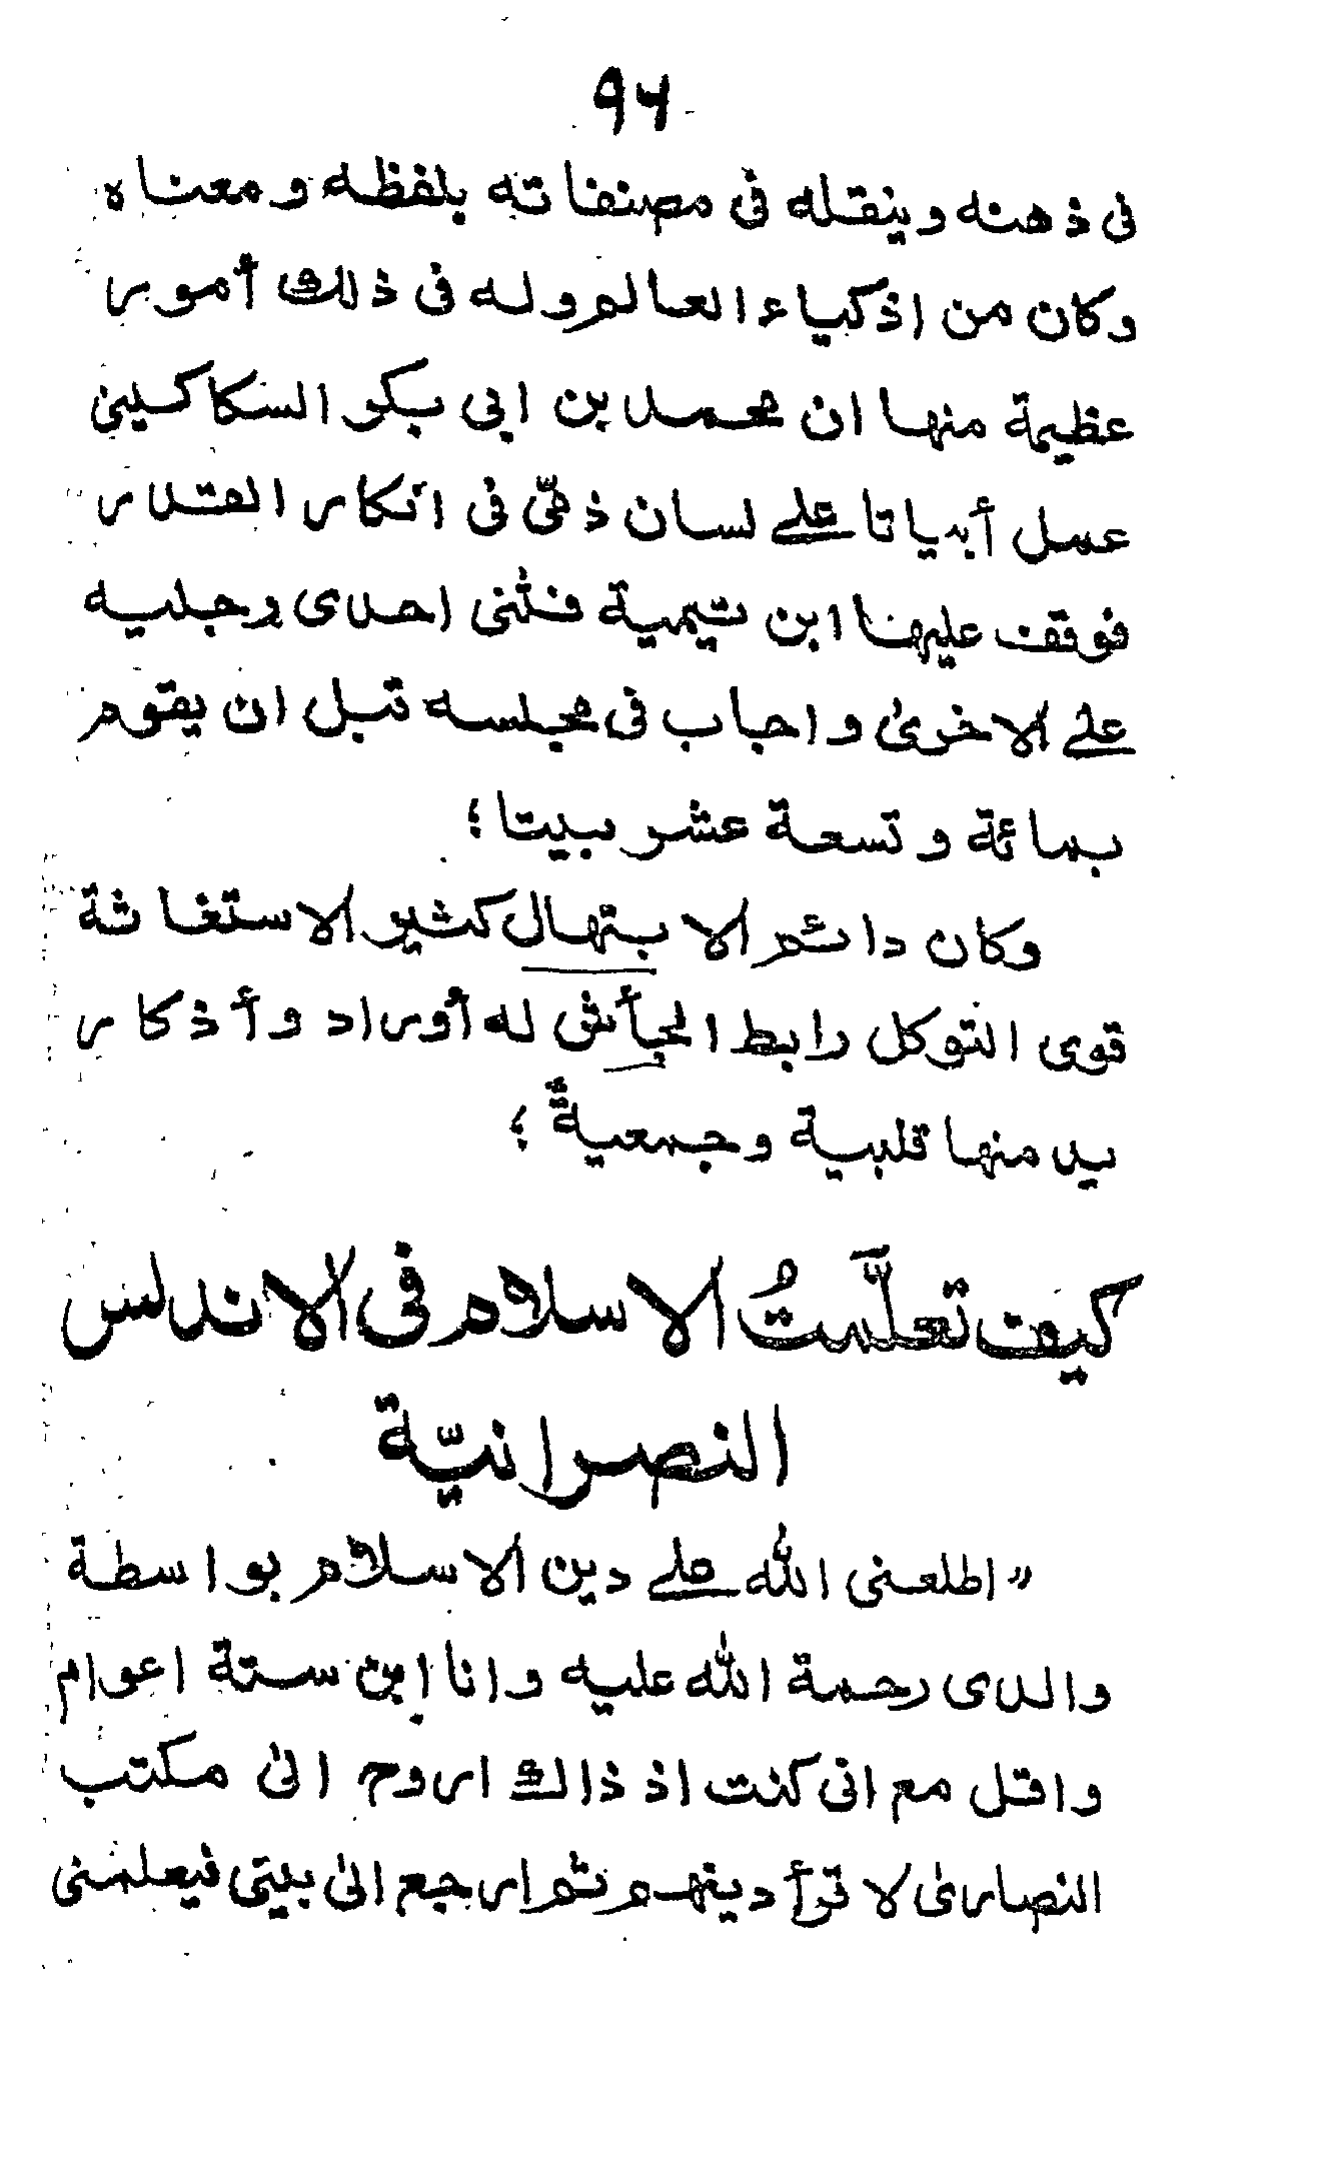 ٩٤
فى ذهنه وينقله فى مصنفاته بلفظه ومعناه
وكان من اذكياء العالم وله فى ذلك أمور
عظيمة منها ان محمد بن ابي بكر السكاكينى
عمل أبياتا على لسان ذمّى فى انكار القدر
فوقف عليها ابن تيمية فثنى احدى رجليه
على الاخرىٰ واجاب فى مجلسه قبل ان يقوم
بمائة وتسعة عشر بيتا؛
وكان دائم الابتهال كثير الاستغاثة
قوى التوكل رابط الجأش له أوراد وأذكار
يدمنها قلبية وجمعيةٌ؛
كيف تعلَّمتُ الاسلام فى الاندلس
النصرانيّة
“اطلعنى الله على دين الاسلام بواسطة
والدى رحمة الله عليه وانا ابن ستة اعوام
واقل مع انى كنت اذ ذالك اروح الىٰ مكتب
النصارىٰ لا قرأ دينهم ثم ارجع الىٰ بيتى فيعلمنى